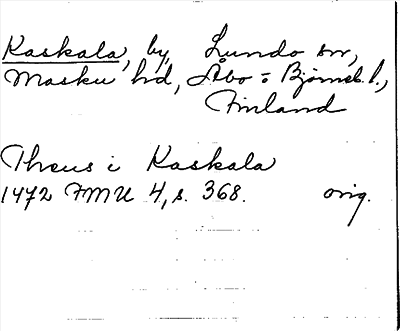 Kaskala, by, Lundo sn,
Masku hd, Åbo o Björneb. l.,
Finland
Threus i Kaskala
1472 FMU 4, s. 368. orig.